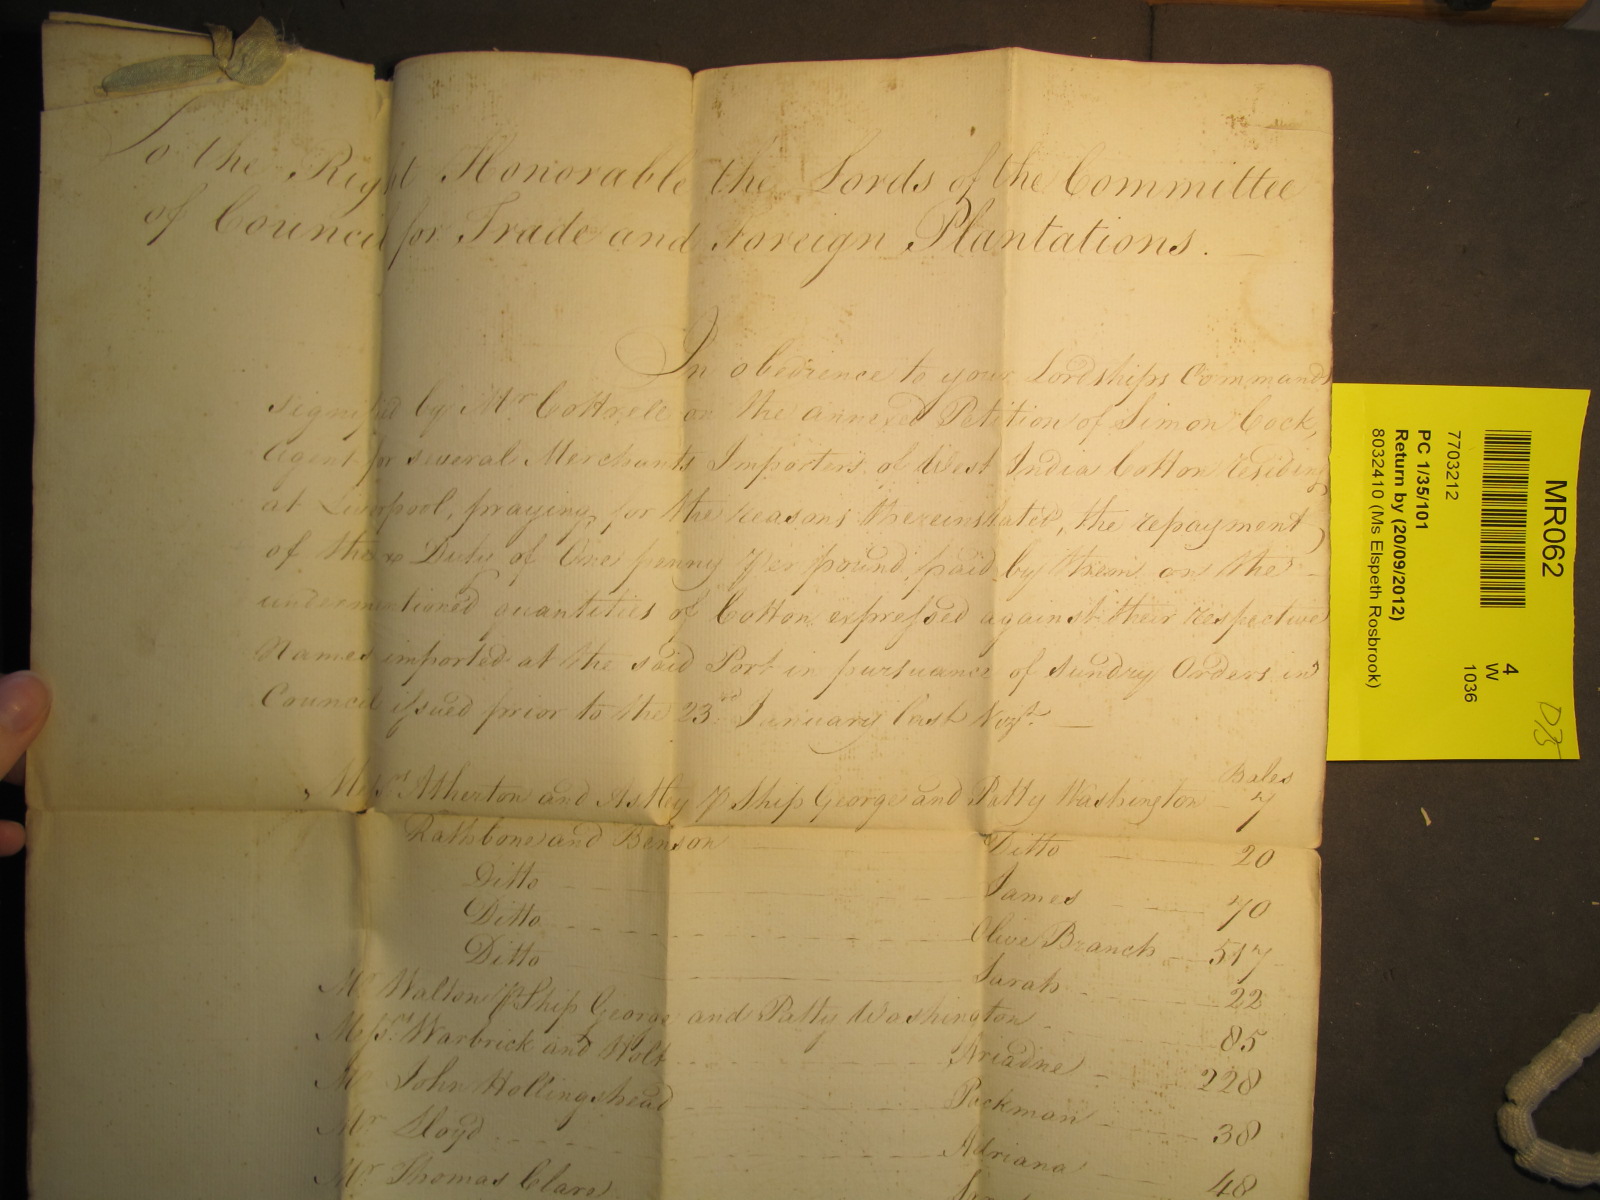 To the Right Honorable the Lords of the Committee
of Council for Trade and Foreign Plantations.
In obedience to your Lordships Commands
signified by Mr Cottrell on the annexed Petition of Simon Cock,
Agent for several Merchants Importers of West India Cotton residing
at Liverpool, praying, for the reasons therein stated, the repayment
of the Duty of One penny per pound paid by them on the
undermentioned quantities of Cotton expressed against their respective
Names imported at the said Port in pursuance of sundry Orders in
Council issued prior to the 23rd January last Vizt.
Bales
Messrs Atherton and Astley p Ship George and Patty Washington 7
Rathbone and Benson Ditto 20
Ditto James 70
Ditto Olive Branch 517
Ditto Sarah 22
Mr Walton p Ship George and Patty Washington 85
Messrs Warbrick and Holt Ariadne 228
Mr John Hollingshead Packman 38
Mr Lloyd Adriana 48
Mr Thomas Clare
MR062
4
W
1036
7703212
PC 1/35/101
Return by (20/09/2012)
8032410 (Ms Elspeth Rosbrook)